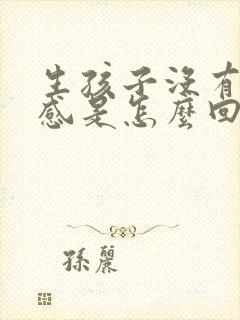 生孩子沒有
感是怎麼回
孫麗